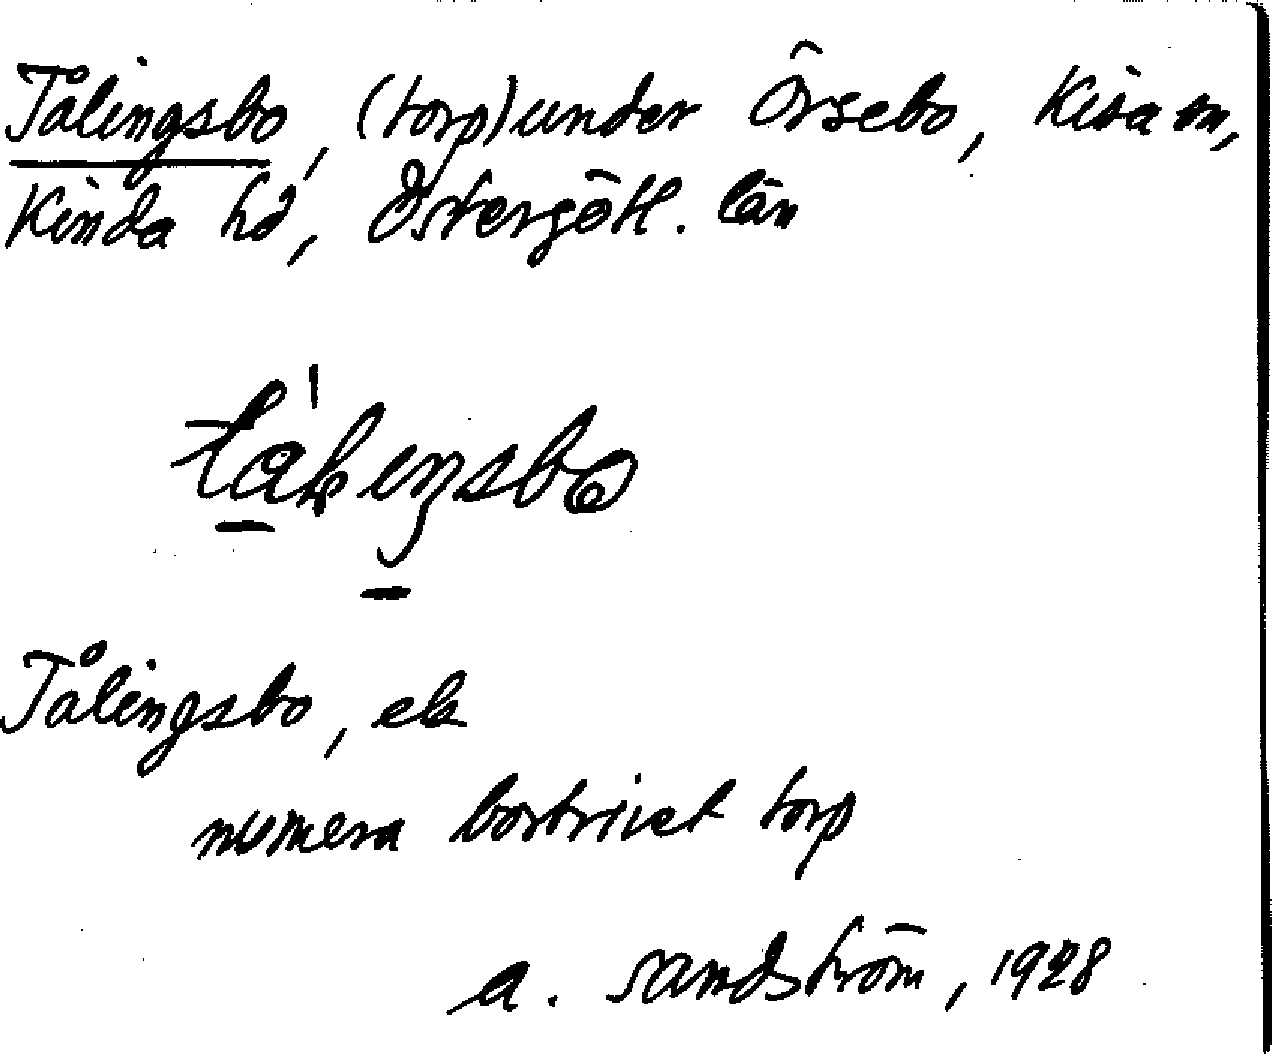 Tålingsbo, (torp) under Örsebo, Kisa sn,
Kinda hd, Östergötl. län
Tålingsbo, ek
numera bortrivet torp
A. Sandström, 1928